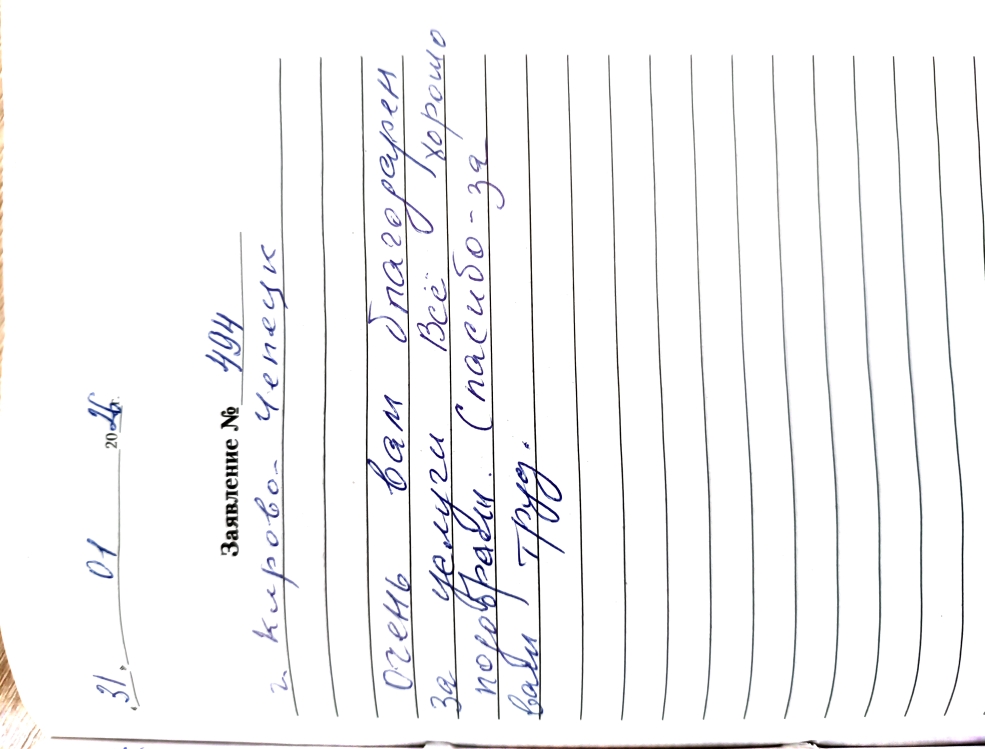 31. 01 2026г.
Заявление № 494
г. Кирово-Чепецк
Очень вам благодарен
за услуги Всё хорошо
подобрали. Спасибо-за
ваш труд.